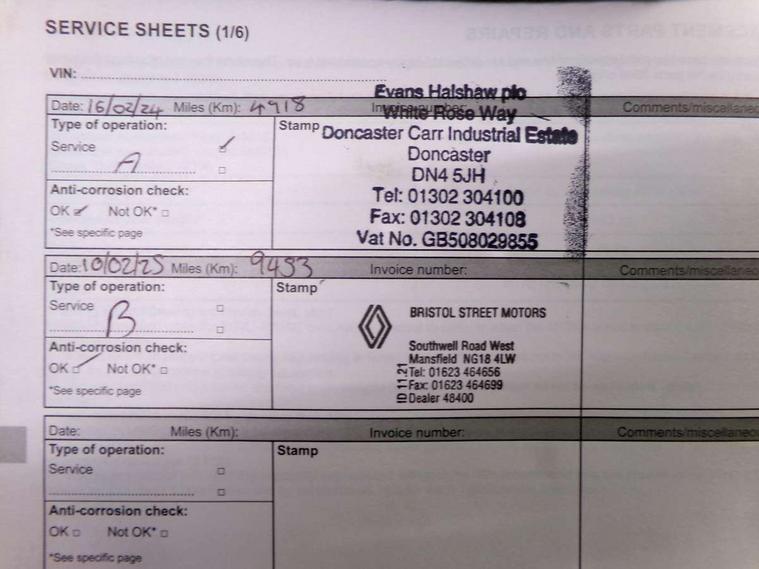 SERVICE SHEETS (1/6)
VIN:
Date: 16/02/24 Miles (Km): 4918 Invoice number: Comments/miscellaneo
Type of operation:
Service
A
Anti-corrosion check:
OK Not OK*
*See specific page
Stamp
Evans Halshaw plc
White Rose Way
Doncaster Carr Industrial Estate
Doncaster
DN4 5JH
Tel: 01302 304100
Fax: 01302 304108
Vat No. GB508029855
Date: 10/02/25 Miles (Km): 9453 Invoice number: Comments/miscellaneo
Type of operation:
Service
B
Anti-corrosion check:
OK Not OK*
*See specific page
Stamp
BRISTOL STREET MOTORS
Southwell Road West
Mansfield NG18 4LW
Tel: 01623 464656
Fax: 01623 464699
Dealer 48400
ID 11.21
Date: Miles (Km): Invoice number: Comments/miscellaneo
Type of operation:
Service
Anti-corrosion check:
OK Not OK*
*See specific page
Stamp